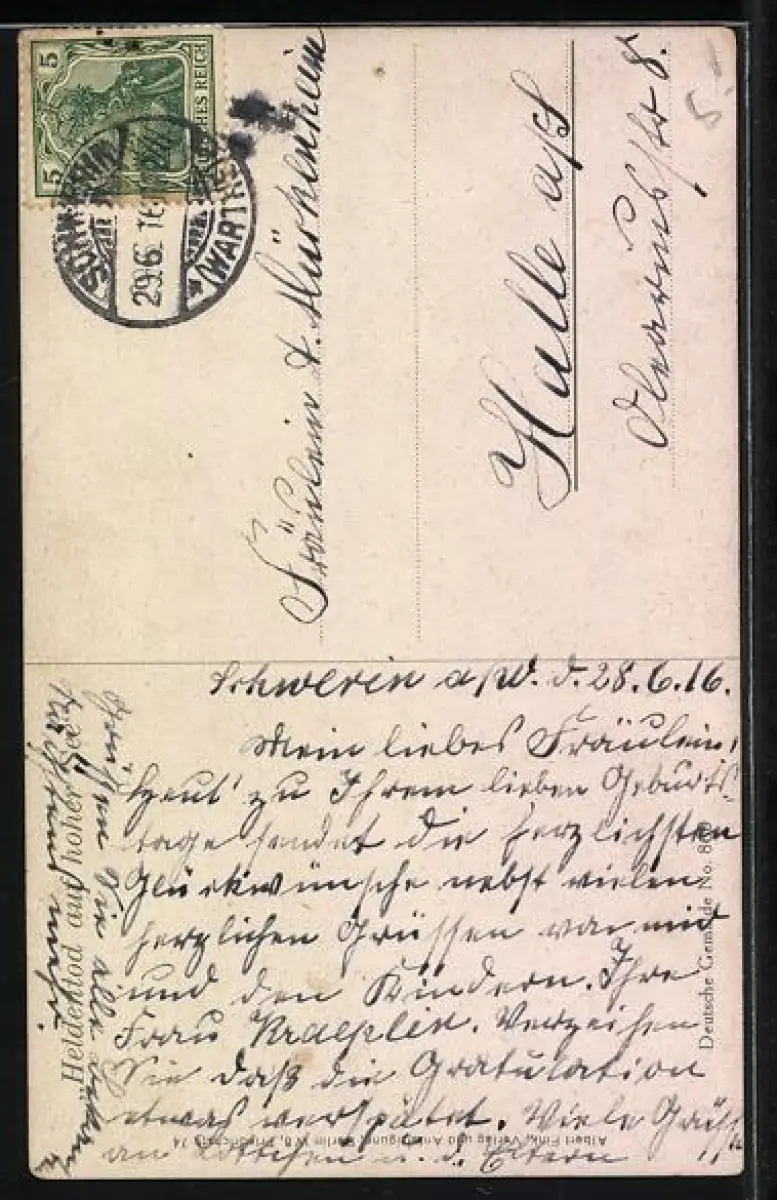 5 5
DEUTSCHES REICH
SCHWERIN
(WARTHE)
29.6.16
Fräulein
Halle a/S
8.
5.
Schwerin a/W. d. 28.6.16.
Mein liebes Fräulein,
Heut' zu Ihrem lieben Geburts-
tage sendet die herzlichsten
Glückwünsche nebst vielen
herzlichen Grüssen von mir
und den Kindern. Ihre
Frau Kraeplin. Verzeihen
Sie daß die Gratulation
etwas verspätet. Viele Grüsse
an Lottchen u. d. Eltern
Grüssen Sie alle
"Heldentod auf hoher See"
Deutsche Gemälde No.
Albert Fink, Verlag und Ankündigung, Berlin W 8, Friedrichstr. 74